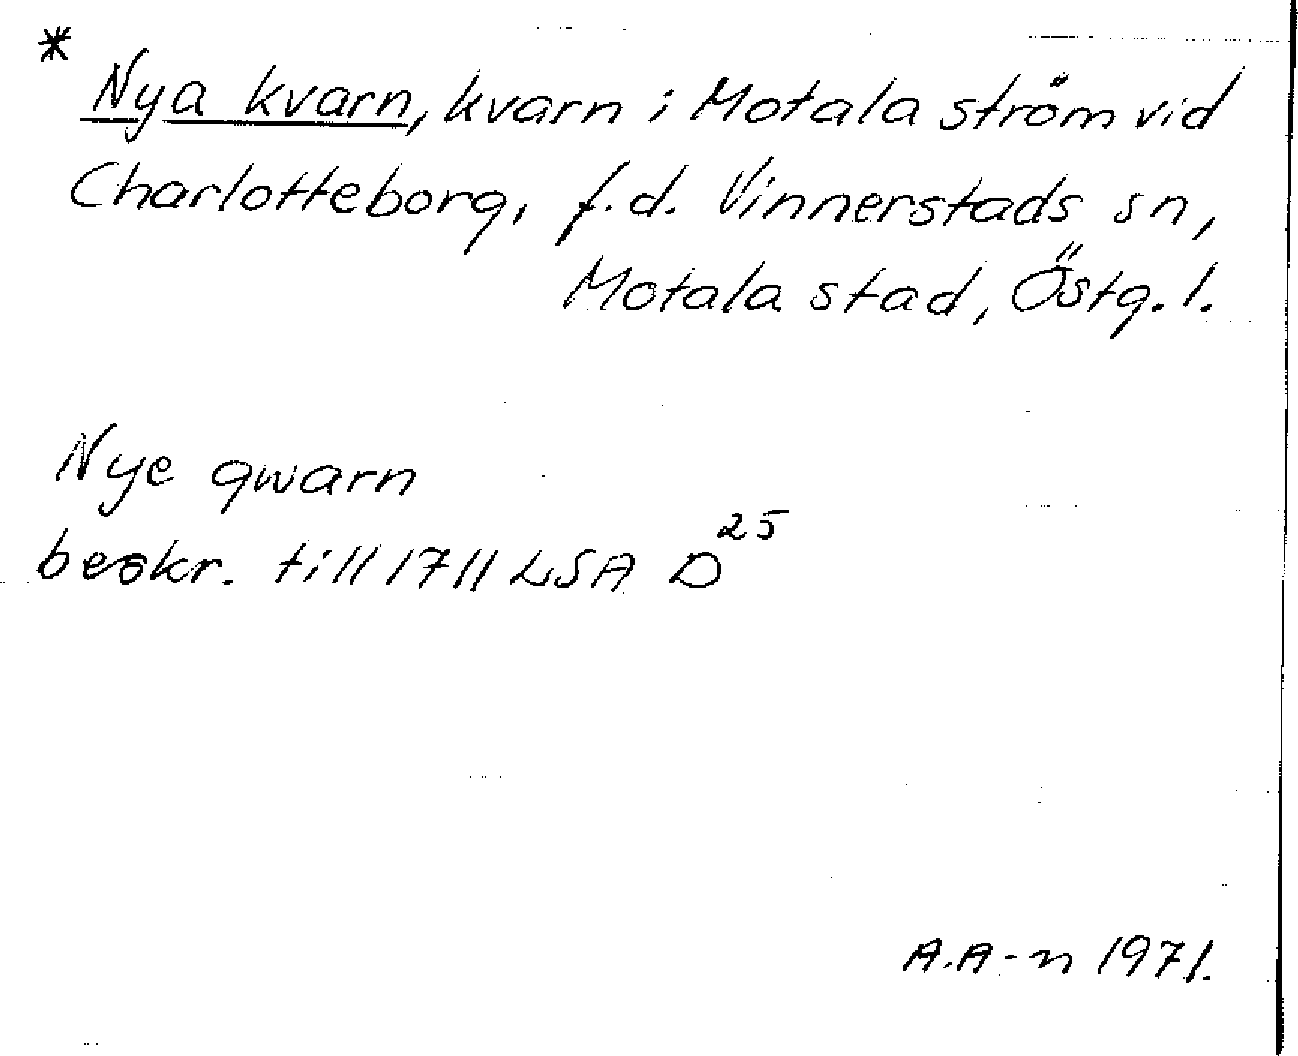 * Nya kvarn, kvarn i Motala ström vid
Charlotteborg, f.d. Vinnerstads sn,
Motala stad, Östg. l.
Nye qwarn
beskr. till 1711 LSA D²⁵
A.A-n 1971.